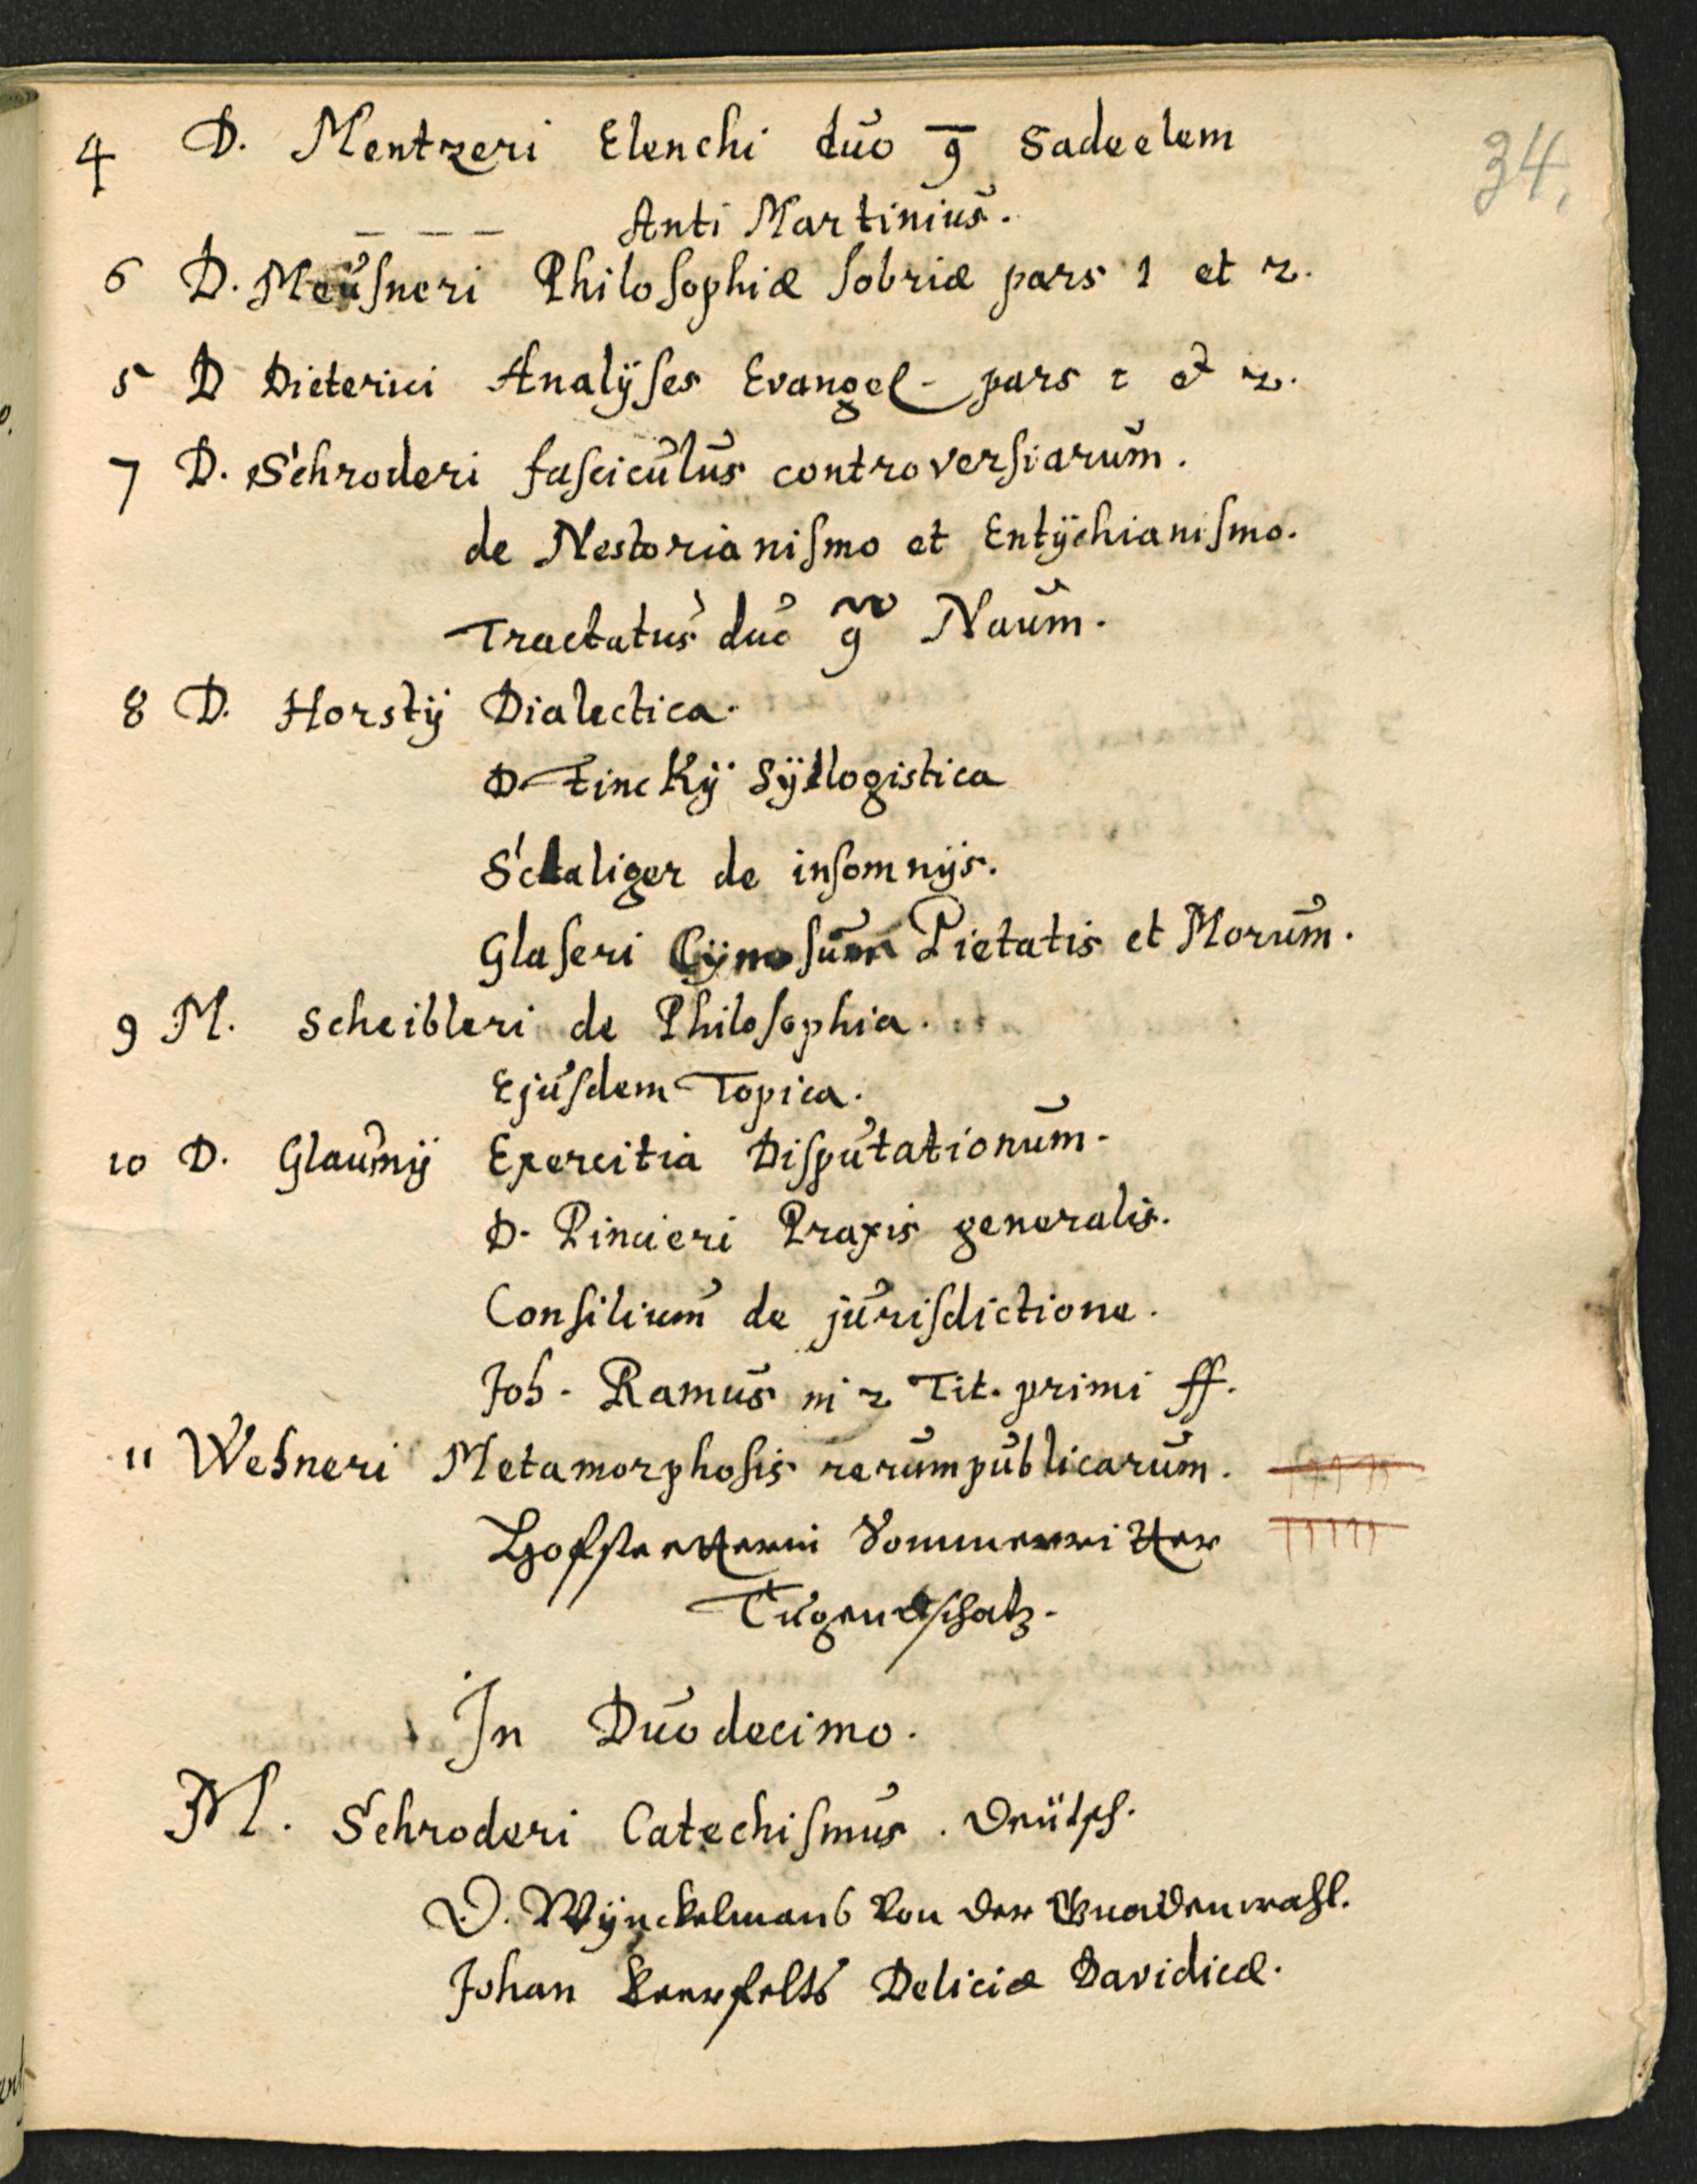 34.
4 D. Mentzeri Elenchi duo g̅ Sadeelem
– – – Anti Martinius.
6 D. Meusneri Philosophiæ sobriæ pars 1 et 2.
5 D Dieterici Analÿses Evangel- pars 1 et 2.
7 D. Schroderi fasciculus controversiarum.
de Nestorianismo et Entÿchianismo.
Tractatus duo g Naum.
8 D. Horstÿ Dialectica.
D. Finckÿ Sÿllogistica
Scaliger de insomnÿs.
Glaseri Pietatis et Morum.
9 M. Scheibleri de Philosophia.
Ejusdem Topica.
10 D. Glaumÿ Exercitia Disputationum.
D. Pincieri Praxis generalis.
Consilium de jurisdictione.
Joh. Ramus in 2 Tit. primi ff.
11 Wehneri Metamorphosis rerumpublicarum.
Sommerritter
Tugendschatz.
In Duodecimo.
M. Schroderi Catechismus. Deütsch.
D. Wÿnckelmans Von der Gnadenwahl.
Johan Deliciæ Davidicæ.